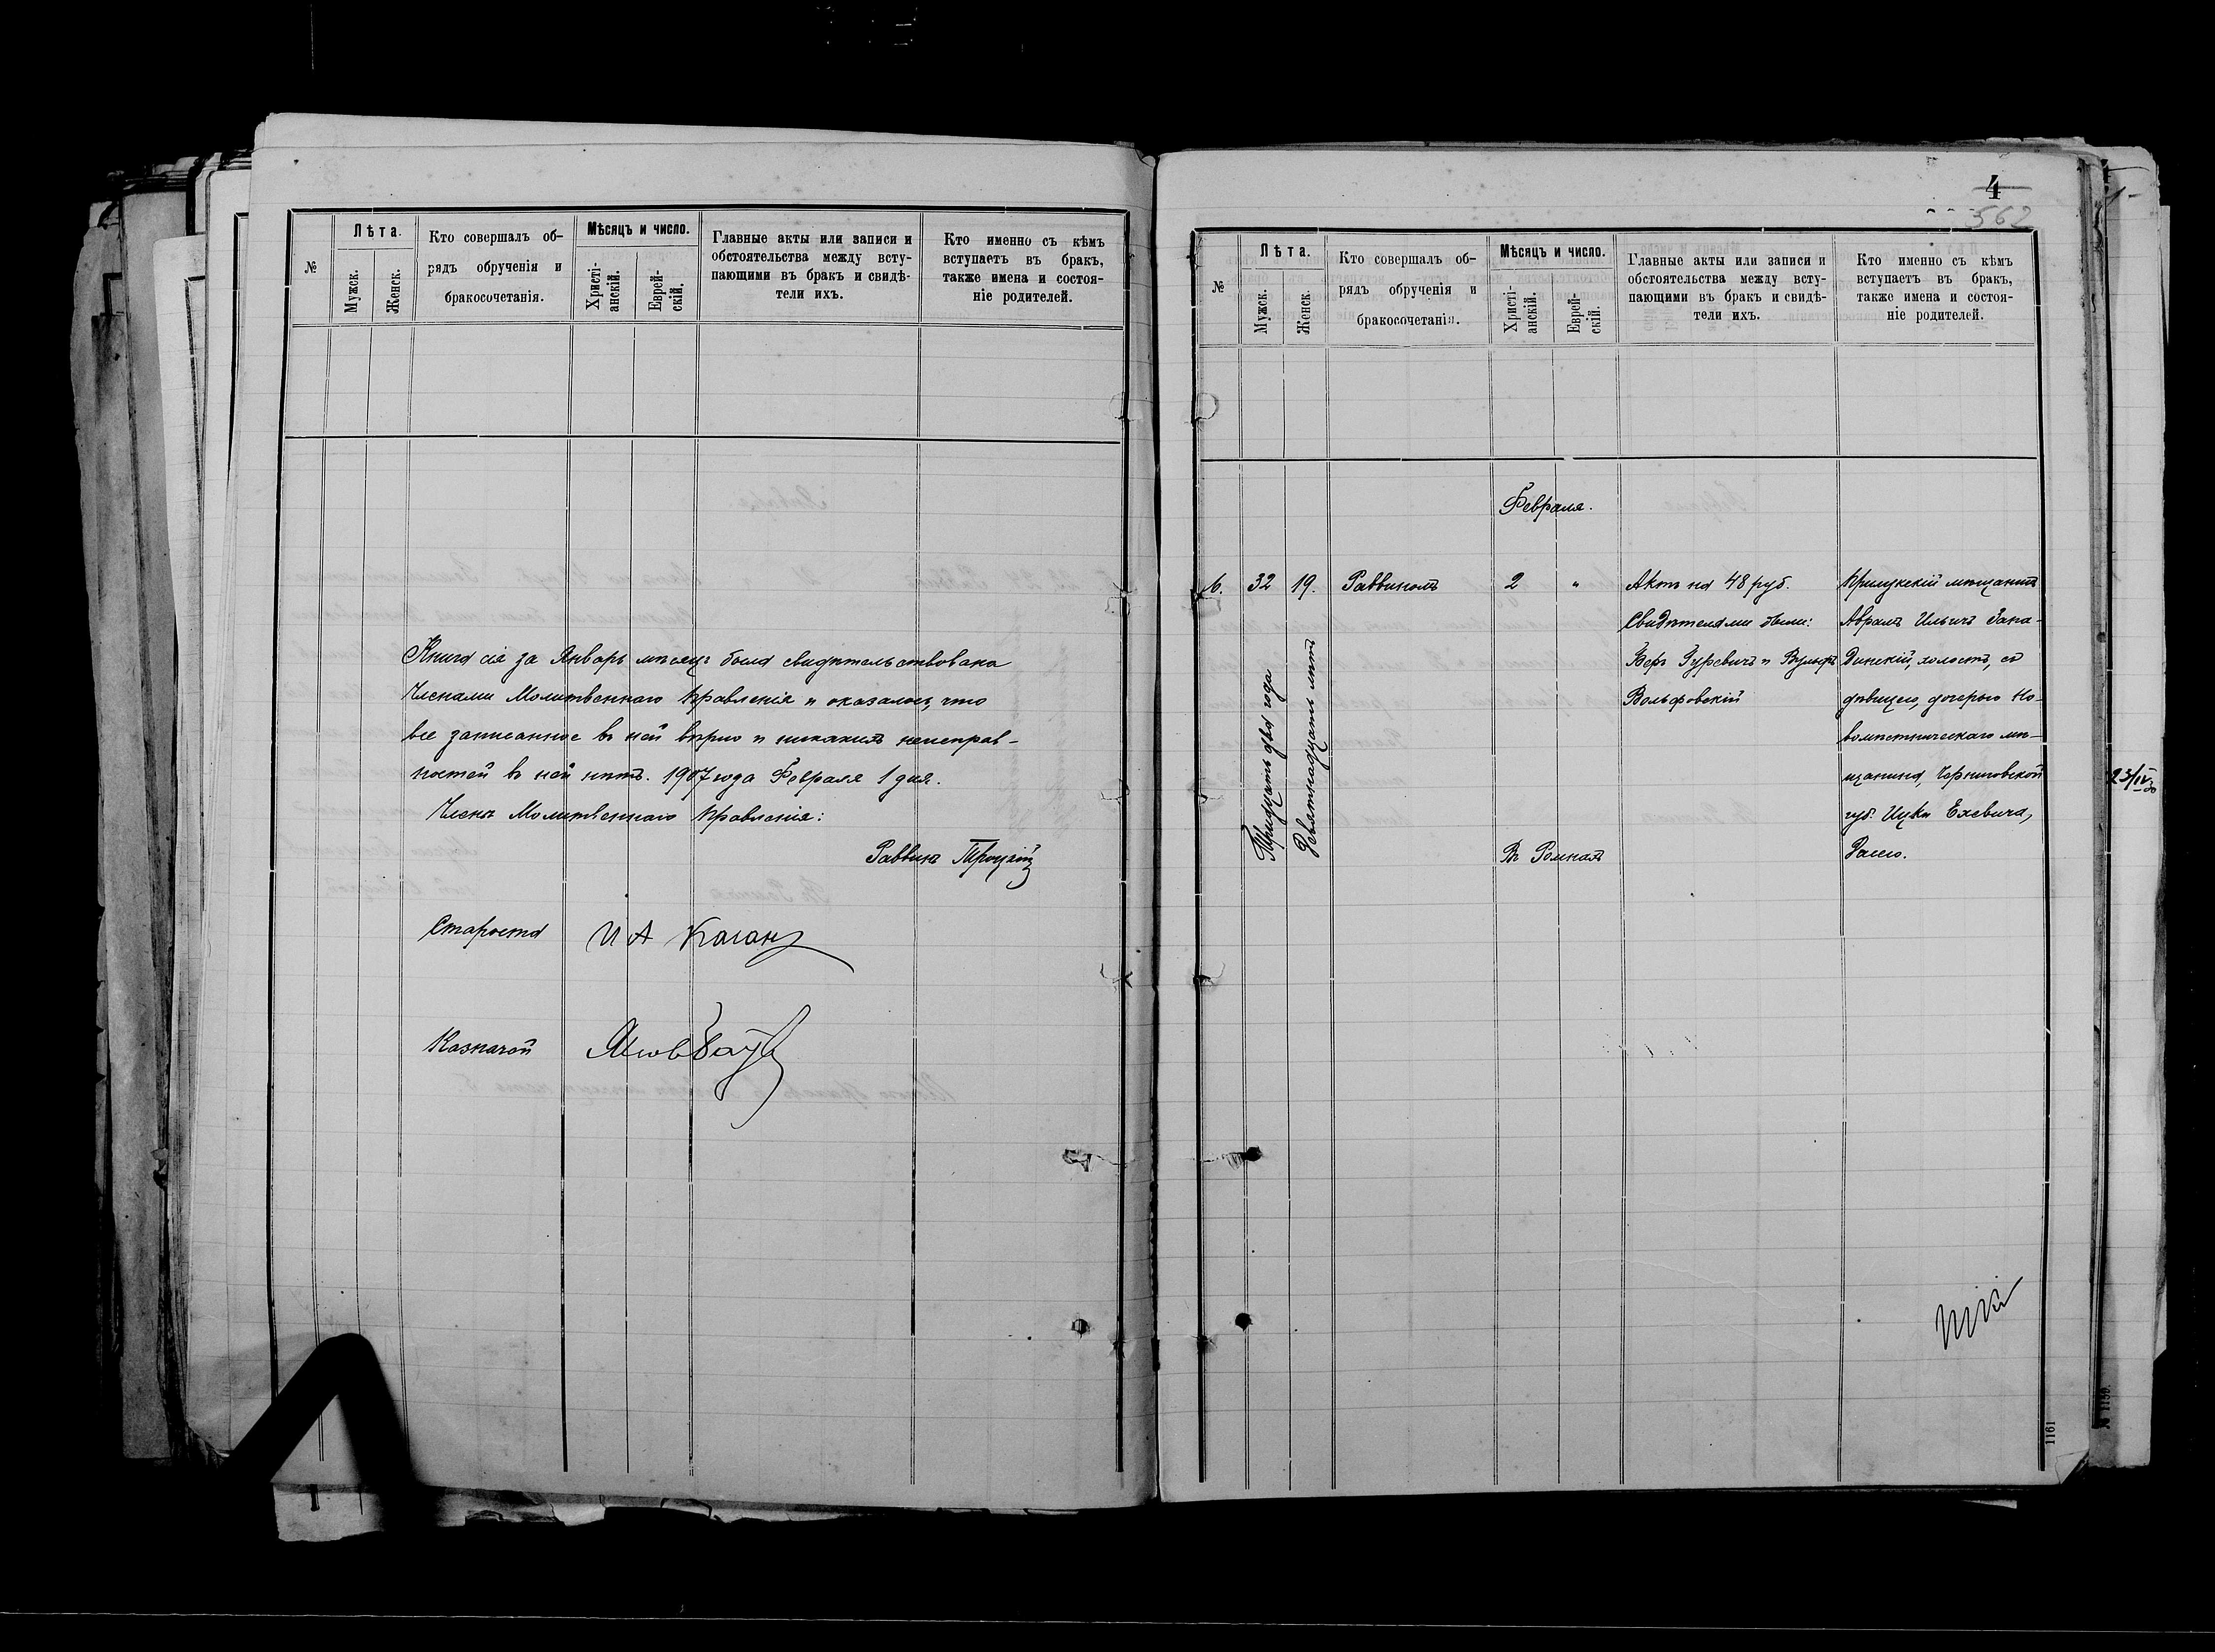 №
Лѣта.
Мужск.
Женск.
Кто совершалъ об-
рядъ обрученія и
бракосочетанія.
Мѣсяцъ и число.
Христі-
анскій.
Еврей-
скій.
Главные акты или записи и
обстоятельства между всту-
пающими въ бракъ и свидѣ-
тели ихъ.
Кто именно съ кѣмъ
вступаетъ въ бракъ,
также имена и состоя-
ніе родителей.
Книга сія за Январь мѣсяцъ была свидѣтельствована
Членами Молитвеннаго Правленія и оказалось, что
все записанное въ ней вѣрно и никакихъ неисправ-
ностей въ ней нѣтъ. 1907 года Февраля 1 дня.
Члены Молитвеннаго Правленія:
Раввинъ Троцкій
Староста И А Каганъ
Казначей
4
562
№
Лѣта.
Мужск.
Женск.
Кто совершалъ об-
рядъ обрученія и
бракосочетанія.
Мѣсяцъ и число.
Христі-
анскій.
Еврей-
скій.
Главные акты или записи и
обстоятельства между всту-
пающими въ бракъ и свидѣ-
тели ихъ.
Кто именно съ кѣмъ
вступаетъ въ бракъ,
также имена и состоя-
ніе родителей.
Февраля.
6.
32
19.
Тридцать два года
Девятнадцать лѣтъ
Раввиномъ
2
"
Въ Ромнахъ
Актъ на 48 руб.
Свидѣтелями были:
Беръ Гуревичъ и Вульфъ
Вольфовскій
Прилукскій мѣщанинъ
Аврамъ Ильичъ Запа-
динскій, холостъ, съ
дѣвицею, дочерью Но-
вомѣстническаго мѣ-
щанина, Черниговской
губ. Ицки Ехевича,
Расею.
1161
23/IV
№ 1159.